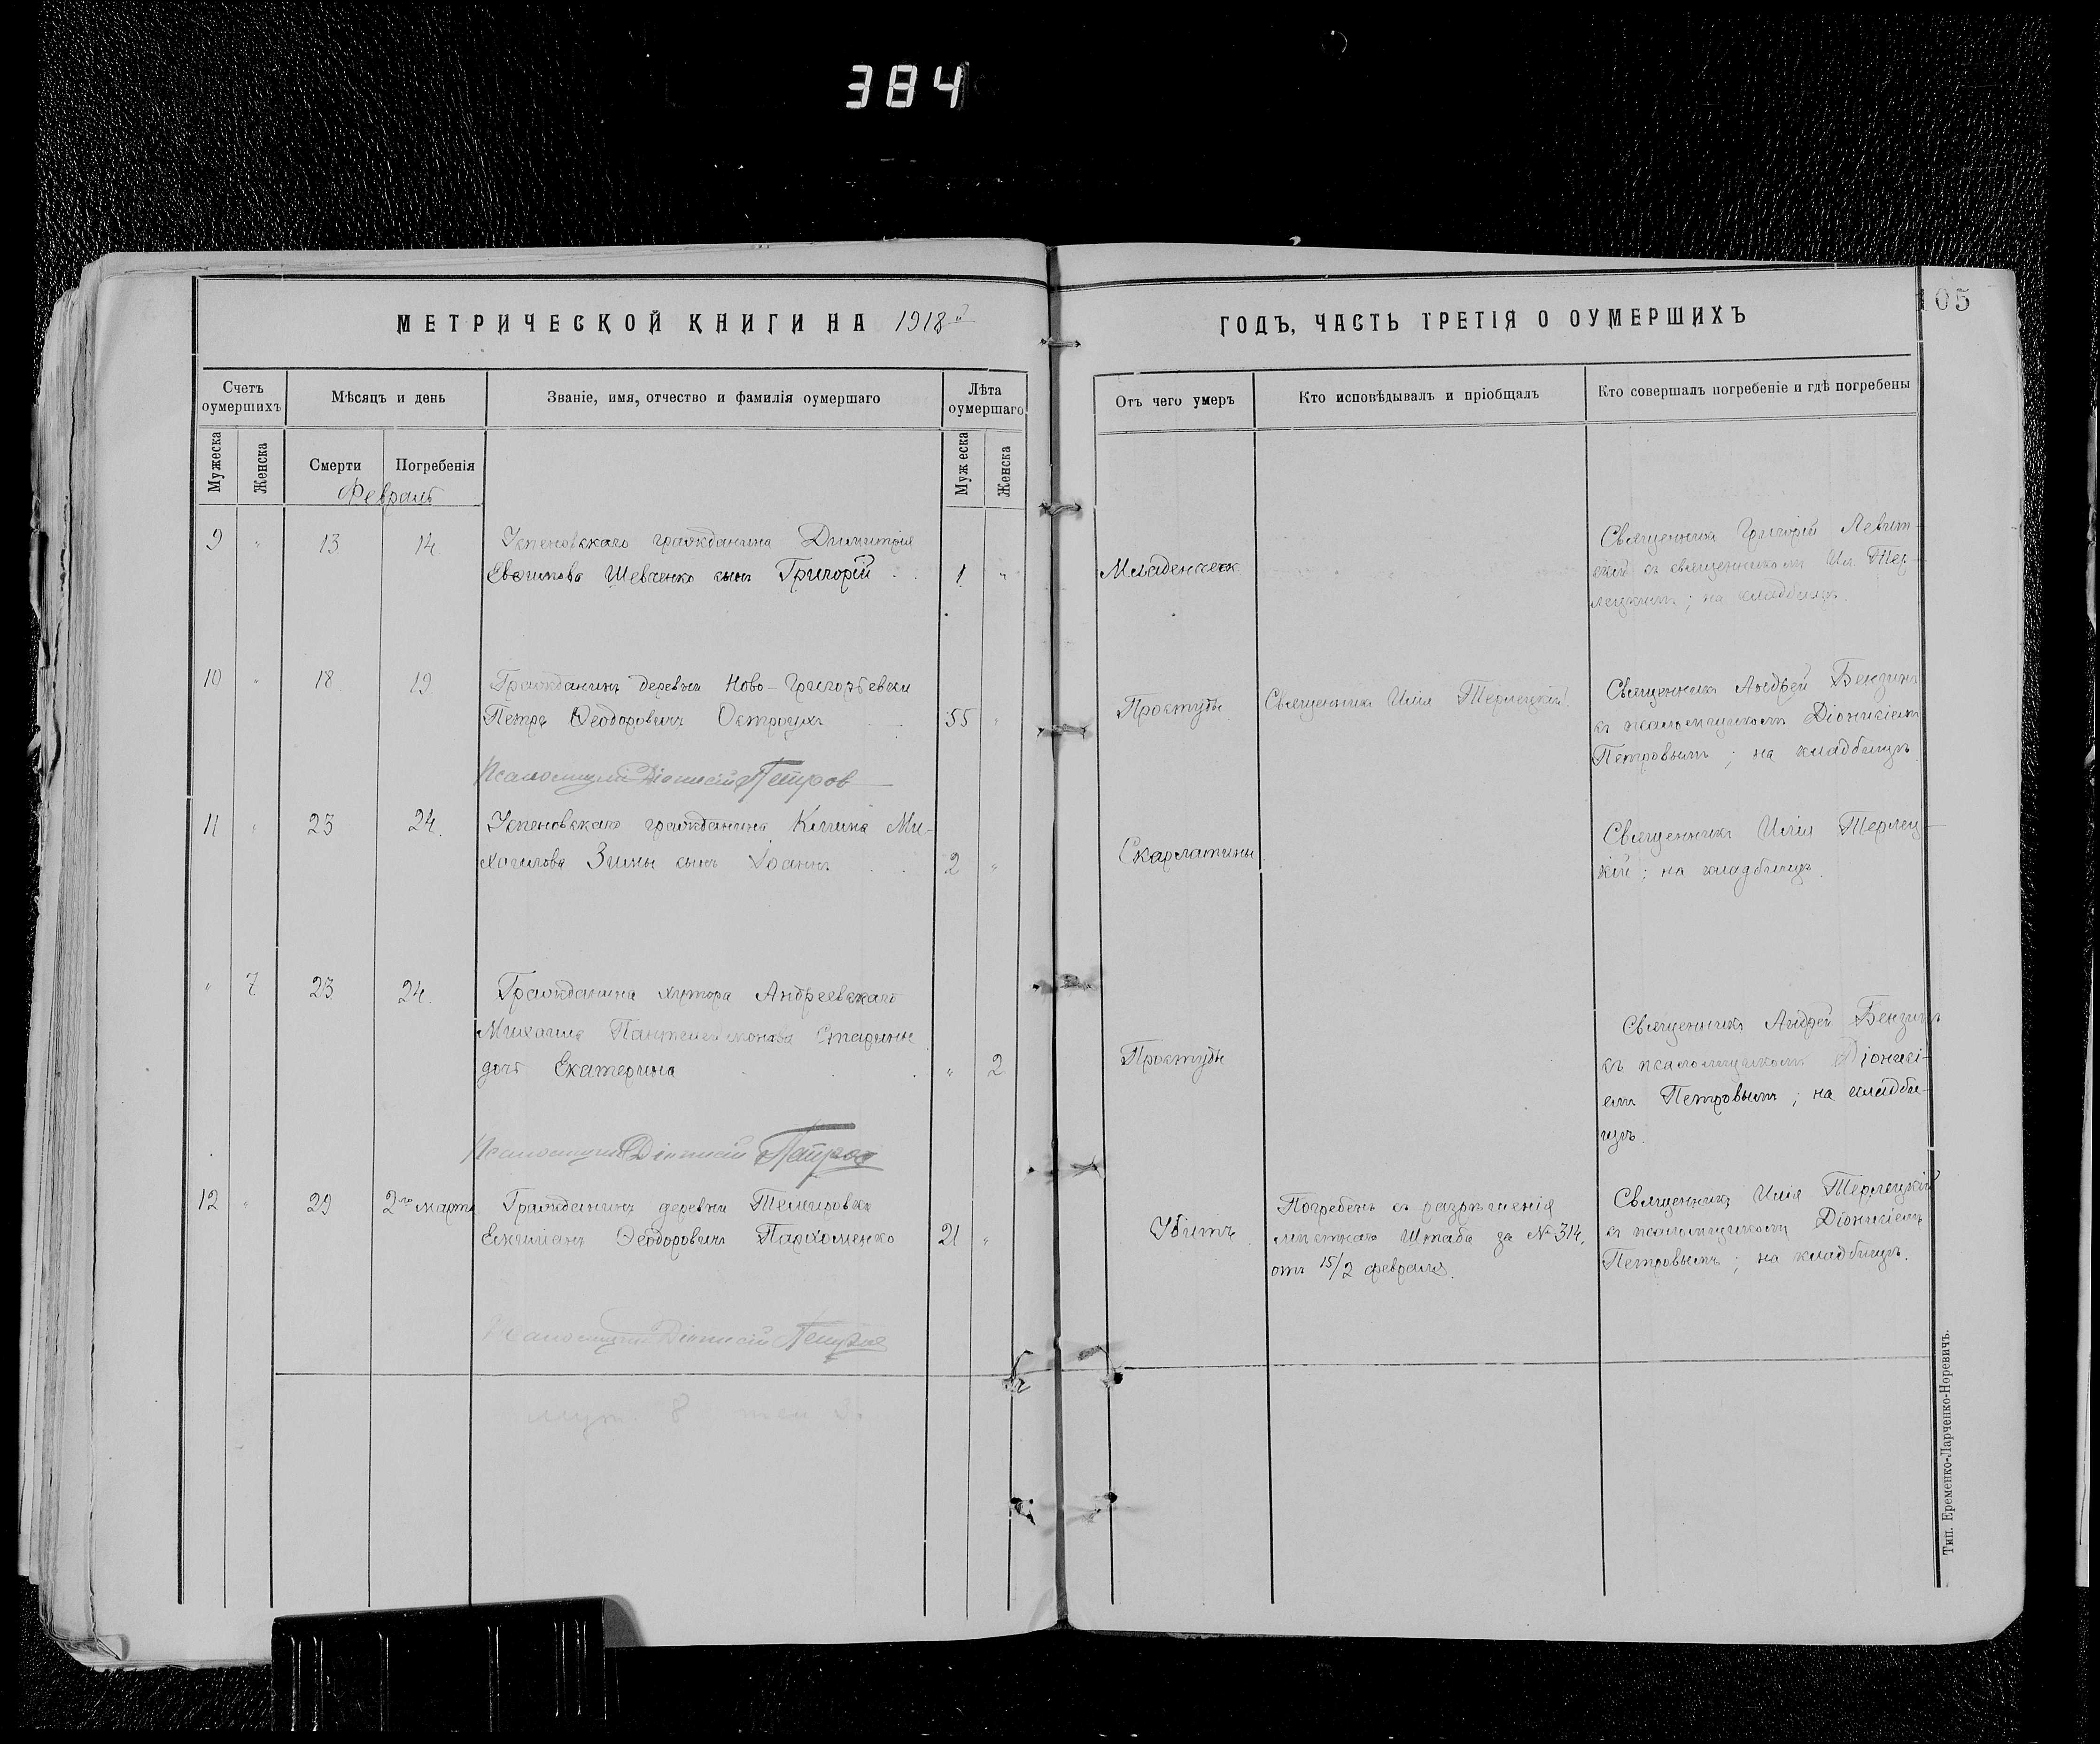 384
МЕТРИЧЕСКОЙ КНИГИ НА 1918й
ГОДЪ, ЧАСТЬ ТРЕТІЯ О ОУМЕРШИХЪ
05
Счетъ оумершихъ
Мѣсяцъ и день
Званіе, имя, отчество и фамилія оумершаго
Лѣта оумершаго
Отъ чего умеръ
Кто исповѣдывалъ и пріобщалъ
Кто совершалъ погребеніе и гдѣ погребены
Мужеска
Женска
Смерти
Погребенія
Мужеска
Женска
Февраль
9 " 13 14
Успеновскаго гражданина Димитрія
Шевченко сынъ Григорій
1 "
Младенческ.
Священникъ Григорій Левит-
скій съ священникомъ Ил. Тер-
лецкимъ; на кладбищѣ.
10 " 18 19
Гражданинъ деревни Ново-Григорьевки
Петръ Ѳеодоровичъ
55 "
Простуды
Священникъ Илія Терлецкій.
Священникъ Андрей Бензинъ
съ псаломщикомъ Діонисіемъ
Петровымъ; на кладбищѣ.
Псаломщикъ Діонисій Петров
11 " 23 24.
Успеновскаго гражданина Ми-
хаилова Зимы сынъ Іоаннъ
2 "
Скарлатины
Священникъ Илія Терлец-
кій; на кладбищѣ.
" 7 23 24.
Гражданина хутора Андреевскаго
Михаила Пантелеимонова
дочь Екатерина
" 2
Простуды
Священникъ Андрей Бензинъ
съ псаломщикомъ Діонисі-
емъ Петровымъ; на кладби-
щѣ.
Псаломщикъ Діонисій Петров
12 " 29 2го марта
Гражданинъ деревни Темировки
Ѳеодоровичъ Пархоменко
21 "
Убитъ
Погребенъ съ разрѣшенія
мѣстнаго Штаба за № 314,
отъ 15/2 февраля.
Священникъ Илія Терлецкій
съ псаломщикомъ Діонисіемъ
Петровымъ; на кладбищѣ.
Псаломщикъ Діонисій Петров
муж. 8 жен 3.
Тип. Еременко-Ларченко-Норевичъ.